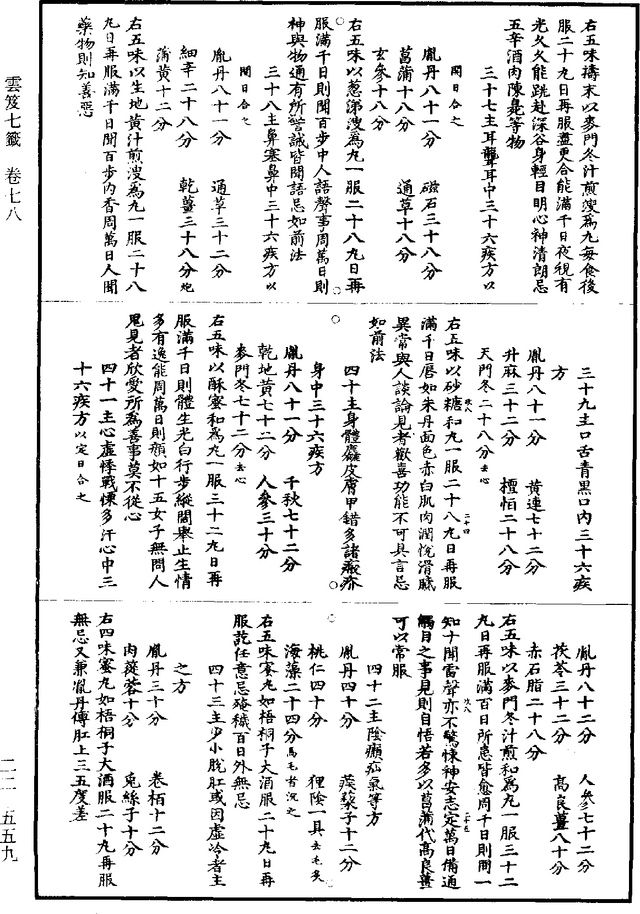 右五味擣末以麥門冬汁煎溲爲丸每食後
服二十九日再服盡更合能滿千日夜視有
光久久能跳赴深谷身輕目明心神清朗忌
五辛酒肉陳臭等物
三十七主耳聾耳中三十六疾方以
閉日合之
胤丹八十一分 磁石三十八分
菖蒲十八分 通草十八分
玄參十八分
右五味以葱涕溲爲丸一服二十八丸日再
服滿千日則聞百步中人語聲事周萬日則
神與物通有所警誡皆聞語忌如前法
三十八主鼻塞鼻中三十六疾方以
開日合之
胤丹八十一分 通草三十二分
細辛二十八分 乾薑三十八分炮
蒲黄十二分
右五味以生地黄汁煎溲爲丸一服二十八
丸日再服滿千日聞百步内香周萬日人聞
藥物則知善惡
三十九主口舌青黑口内三十六疾
方
胤丹八十一分 黄連七十二分
升麻三十二分 檀栢二十八分
天門冬二十八分去心
右五味以砂糖和丸一服二十八丸日再服
滿千日唇如朱丹面色赤白肌肉潤悦滑膩
異常與人談論見者歡喜功能不可具言忌
如前法
四十主身體麤皮膚甲錯多諸瘢疥
身中三十六疾方
胤丹八十一分 千秋七十二分
乾地黄七十二分 人參三十分
麥門冬七十二分去心
右五味以酥蜜和爲丸一服三十二丸日再
服滿千日則體生光白行步縱閒舉止生情
多有逸能周萬日則顔如十五女子無問人
鬼見者欣愛所爲善事莫不從心
四十一主心虚悸戰慄多汗心中三
十六疾方以定日合之
胤丹八十二分 人參七十二分
茯苓三十二分 高良薑八十分
赤石脂二十八分
右五味以麥門冬汁煎和爲丸一服三十二
丸日再服滿百日所患皆愈周千日則問一
知十聞雷聲亦不驚悚神安志定萬日備通
觸目之事見則自悟若多以菖蒲代高良薑
可以常服
四十二主陰癩疝氣等方
胤丹四十分 蒺藜子十二分
桃仁四十分 狸陰一具去毛炙
海藻二十四分
右五味蜜丸如梧桐子大酒服二十九日再
服訖任意忌殗穢百日外無忌
四十三主少小脱肛或因虚冷者主
之方
胤丹三十分 卷栢十二分
肉蓯蓉十分 兔絲子十分
右四味蜜丸如梧桐子大酒服二十九再服
無忌又兼胤丹傅肛上三五度差
雲笈七籤 卷七八
二二 五五九